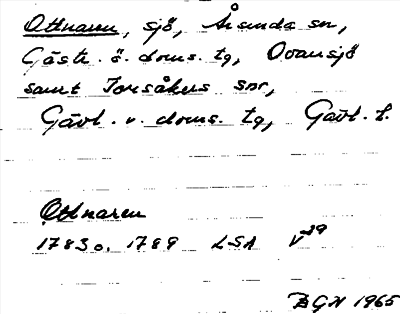 Ottnaren, sjö, Årsunda sn,
Gästr. ö. doms. tg, Ovansjö
samt Torsåkers snr,
Gävl. v. doms. tg, Gävl. l.
Ottnaren
1783 o. 1789 LSA V
BGH 1965